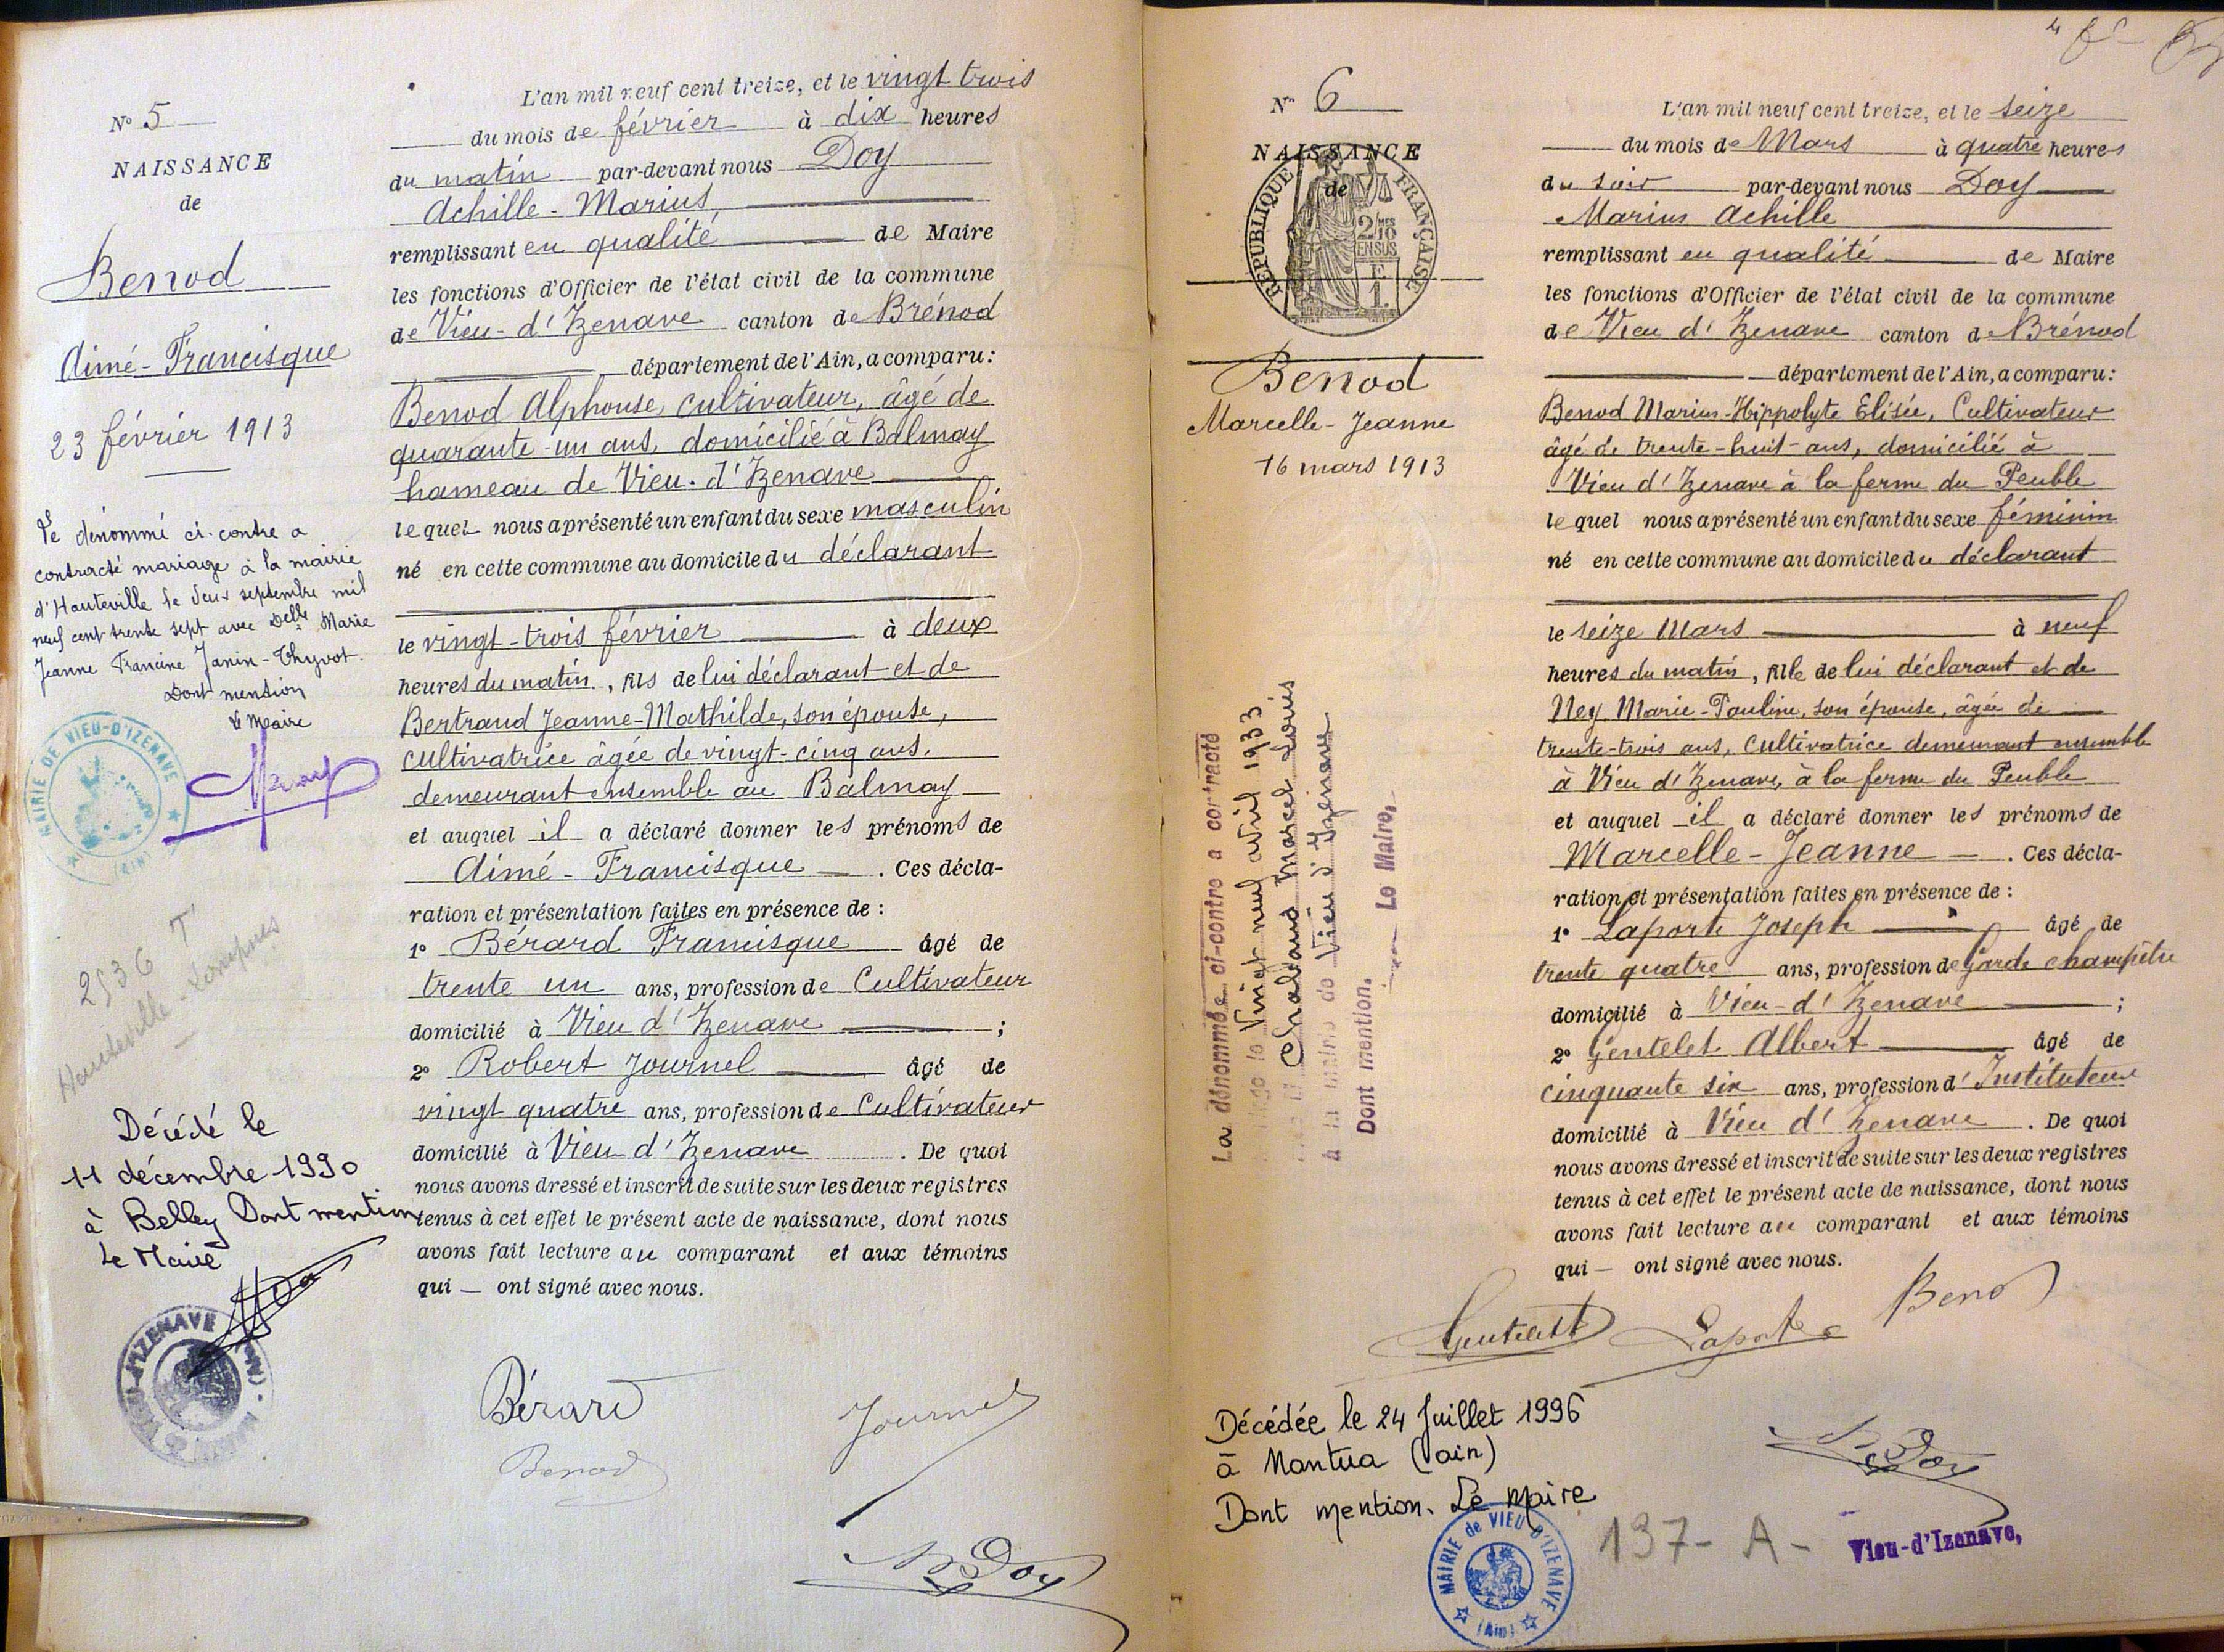 N° 5
NAISSANCE
de
Benod
Aimé-Francisque
23 février 1913
Le dénommé ci-contre a
contracté mariage à la mairie
d'Hauteville le deux septembre mil
neuf cent trente sept avec Delle Marie
Jeanne Francine Janin-Thyvot.
Dont mention
Le Maire
MAIRIE DE VIEU-D'IZENAVE
(Ain)
2536 T
Hauteville-Lompnes
Décédé le
11 décembre 1990
à Belley Dont mention
Le Maire
L'an mil neuf cent treize, et le vingt trois
du mois de février à dix heures
du matin par-devant nous Doy
Achille-Marius
remplissant en qualité de Maire
les fonctions d'Officier de l'état civil de la commune
de Vieu-d'Izenave canton de Brénod
département de l'Ain, a comparu:
Benod Alphonse, cultivateur, âgé de
quarante-un ans, domicilié à Balmay
hameau de Vieu-d'Izenave
lequel nous a présenté un enfant du sexe masculin
né en cette commune au domicile du déclarant
le vingt-trois février à deux
heures du matin, fils de lui déclarant et de
Bertrand Jeanne-Mathilde, son épouse,
cultivatrice âgée de vingt-cinq ans,
demeurant ensemble au Balmay
et auquel il a déclaré donner les prénoms de
Aimé-Francisque. Ces décla-
ration et présentation faites en présence de :
1° Bérard Francisque âgé de
trente un ans, profession de Cultivateur
domicilié à Vieu d'Izenave ;
2° Robert Journel âgé de
vingt quatre ans, profession de Cultivateur
domicilié à Vieu d'Izenave. De quoi
nous avons dressé et inscrit de suite sur les deux registres
tenus à cet effet le présent acte de naissance, dont nous
avons fait lecture au comparant et aux témoins
qui — ont signé avec nous.
Bérard
Journel
Benod
Doy
N° 6
NAISSANCE
de
RÉPUBLIQUE FRANÇAISE
2/10 MES
EN SUS
F.
1.
Benod
Marcelle-Jeanne
16 mars 1913
La dénommée ci-contre a contracté
le Vingt neuf avril 1933
Chaland Marcel Louis
à la mairie de Vieu d'Izenave
Dont mention. Le Maire,
L'an mil neuf cent treize, et le seize
du mois de Mars à quatre heures
du soir par-devant nous Doy
Marius Achille
remplissant en qualité de Maire
les fonctions d'Officier de l'état civil de la commune
de Vieu d'Izenave canton de Brénod
département de l'Ain, a comparu:
Benod Marius-Hippolyte Elisée, Cultivateur
âgé de trente-huit-ans, domicilié à
Vieu d'Izenave à la ferme du Peuble
lequel nous a présenté un enfant du sexe féminin
né en cette commune au domicile du déclarant
le seize Mars à neuf
heures du matin, fille de lui déclarant et de
Ney Marie-Pauline, son épouse, âgée de
trente-trois ans, Cultivatrice demeurant ensemble
à Vieu d'Izenave, à la ferme du Peuble
et auquel il a déclaré donner les prénoms de
Marcelle-Jeanne. Ces décla-
ration et présentation faites en présence de :
1° Laporte Joseph âgé de
trente quatre ans, profession de Garde champêtre
domicilié à Vieu-d'Izenave ;
2° Gentelet Albert âgé de
cinquante six ans, profession d'Instituteur
domicilié à Vieu d'Izenave. De quoi
nous avons dressé et inscrit de suite sur les deux registres
tenus à cet effet le présent acte de naissance, dont nous
avons fait lecture au comparant et aux témoins
qui — ont signé avec nous.
Benod
Gentelet Laporte
Doy
Décédée le 24 Juillet 1996
à Nantua (ain)
Dont mention. Le Maire
MAIRIE de VIEU D'IZENAVE
(Ain)
137-A-
Vieu-d'Izenave,